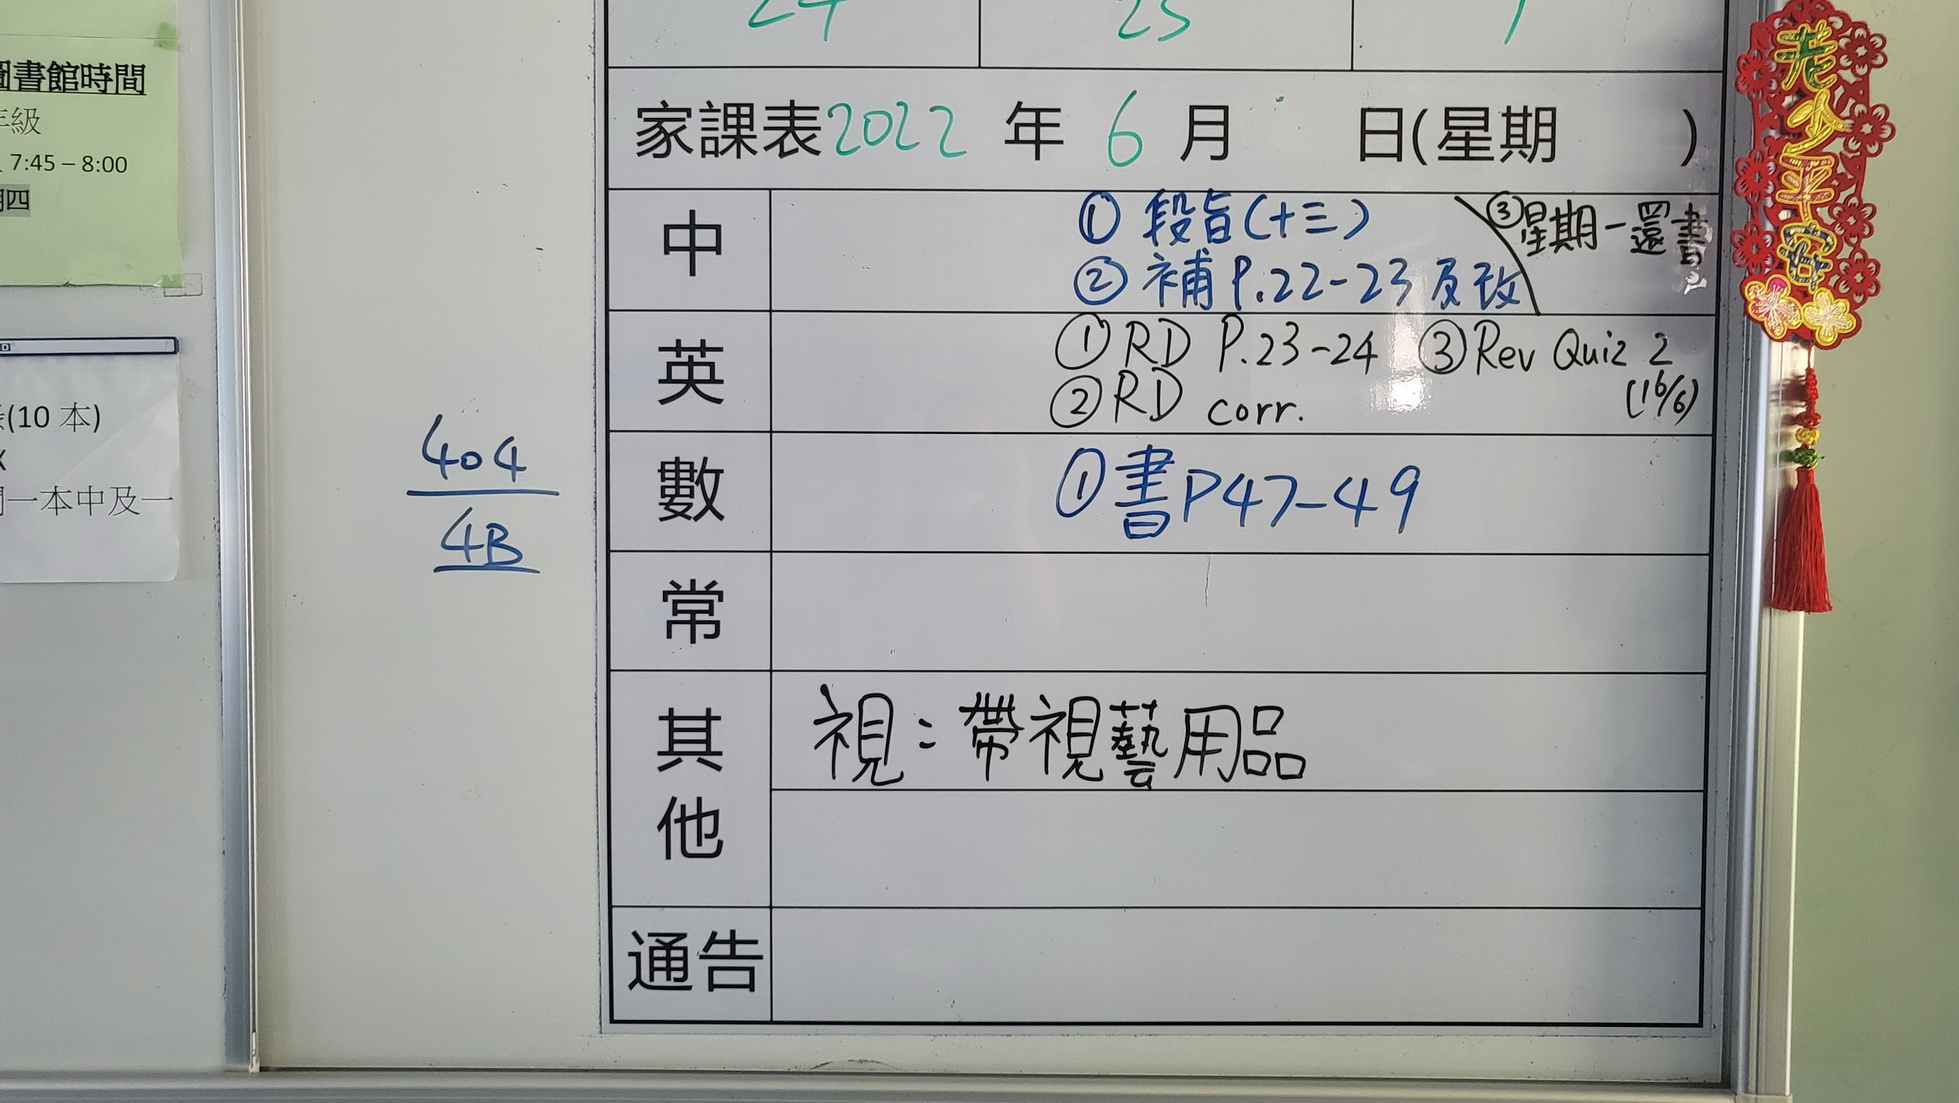 圖書館時間
年級
7:45 – 8:00
期四
(10 本)
一本中及一
404
4B
24 25
家課表 2022 年 6 月 日(星期 )
中
① 段旨(十三)
② 補 P.22-23 反改
③ 星期一還書
英
① RD P.23-24 ③ Rev Quiz 2
② RD corr. (16/6)
數
① 書P47-49
常
其他
視：帶視藝用品
通告
老少平安